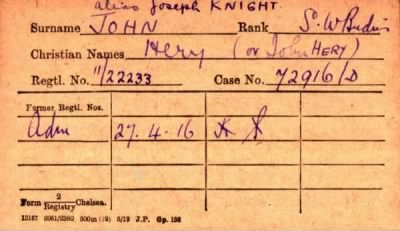 alias Joseph KNIGHT.
Surname JOHN Rank S. W. Bdrs
Christian Names Hery (or John HERY)
Regtl. No. 11/22233 Case No. 72916/D
Former Regtl. Nos.
Adm 27.4.16
Form 2/Registry Chelsea.
13167 6961/3380 500m (12) 5/19 J.P. Gp. 158